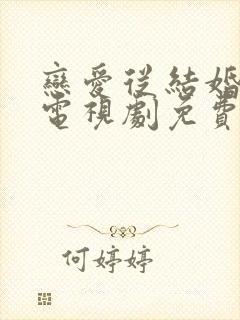 戀愛從結婚
電視劇免費
何婷婷